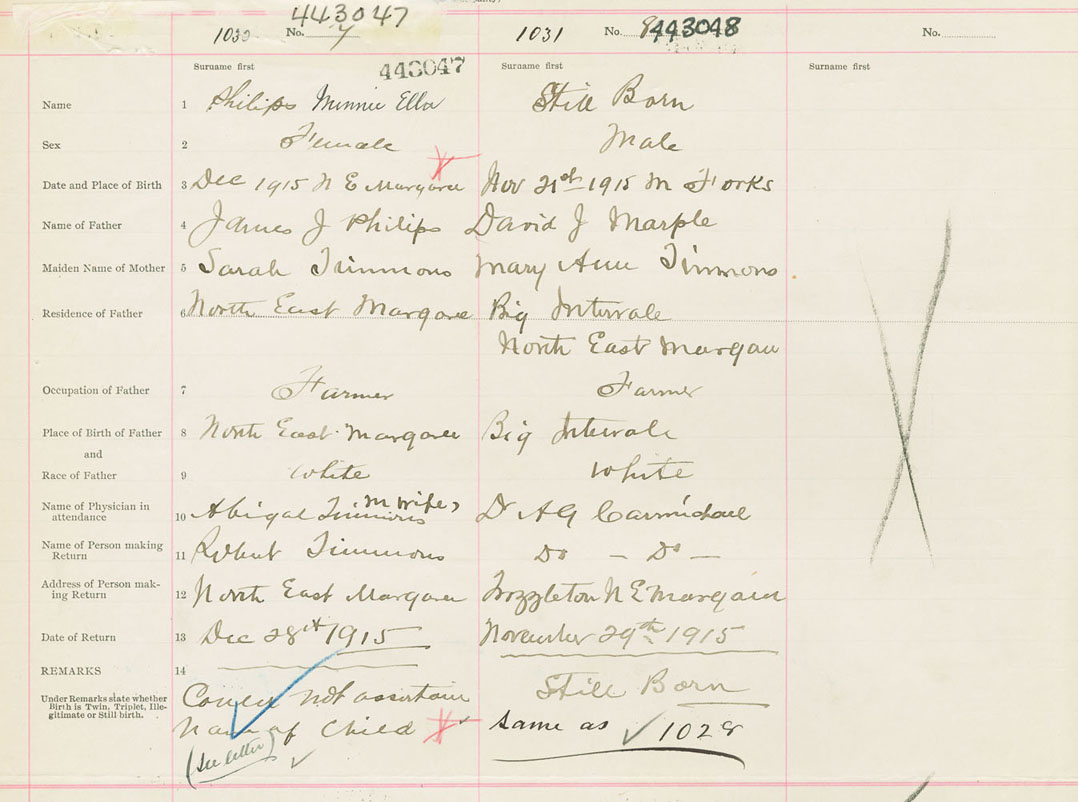 443047
1030 No. 7 1031 No. 8 443048 No.
Surname first 443047 Surname first Surname first
Name 1 Philips Minnie Ella Still Born
Sex 2 Female Male
Date and Place of Birth 3 Dec 1915 N E Margaree Nov 21st 1915 M Forks
Name of Father 4 James J Philips David J Marple
Maiden Name of Mother 5 Sarah Timmons Mary Ann Timmons
Residence of Father 6 North East Margaree Big Intervale
North East Margaree
Occupation of Father 7 Farmer Farmer
Place of Birth of Father 8 North East Margaree Big Intervale
and
Race of Father 9 White White
Name of Physician in
attendance 10 Abigal Timmons M Wife Dr A G Carmichael
Name of Person making
Return 11 Robert Timmons Do - Do -
Address of Person mak-
ing Return 12 North East Margaree N E Margaree
Date of Return 13 Dec 28th 1915 November 29th 1915
REMARKS 14
Under Remarks state whether
Birth is Twin, Triplet, Ille-
gitimate or Still birth.
Could not assertain Still Born
Name of Child same as 1028
(See letter)